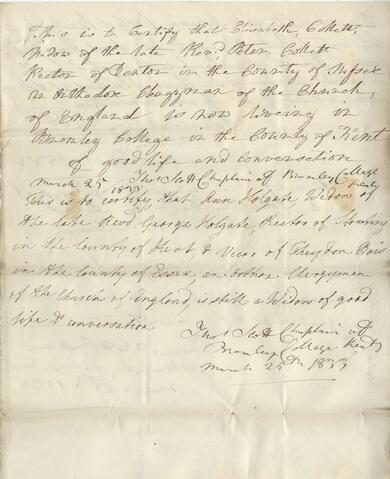 This is to Certify that Elisabeth, Collett,
Widow of the late Revd Peter, Collett
Rector of Denton in the County of Sussex
an Orthadore Clergyman of the Church,
of England is now liveing in
Bromley College in the County of Kent
of good life and Conversation
March 25 Thos Scott Chaplain of Bromley College
1833 Kent
This is to certify that Ann Holgate Widow of
the late Revd George Holgate Rector of
in the County of Kent, & Vicar of Theydon Bois
in the County of Essex, an Clergyman
of the Church of England, is still a Widow of good
life & conversation
Thos Scott Chaplain of
Bromley College Kent
March 25th 1833